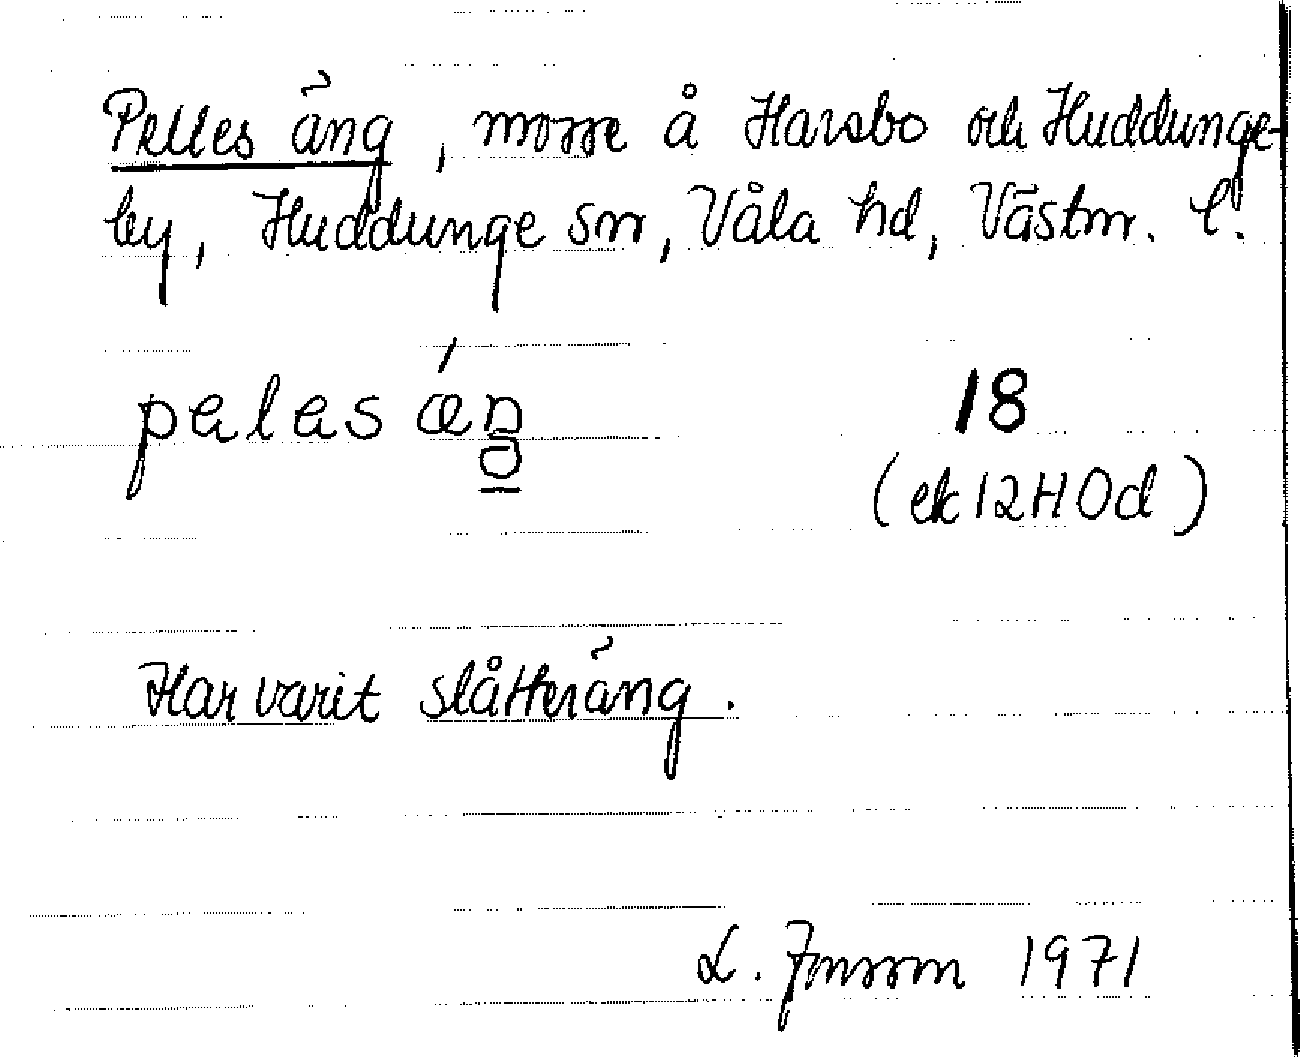 Pelles äng, mosse å Harsbo och Huddunge-
by, Huddunge sn, Våla hd, Västm. l.
18
(ek 12H0d)
Har varit slåtteräng.
L. Jonsson 1971